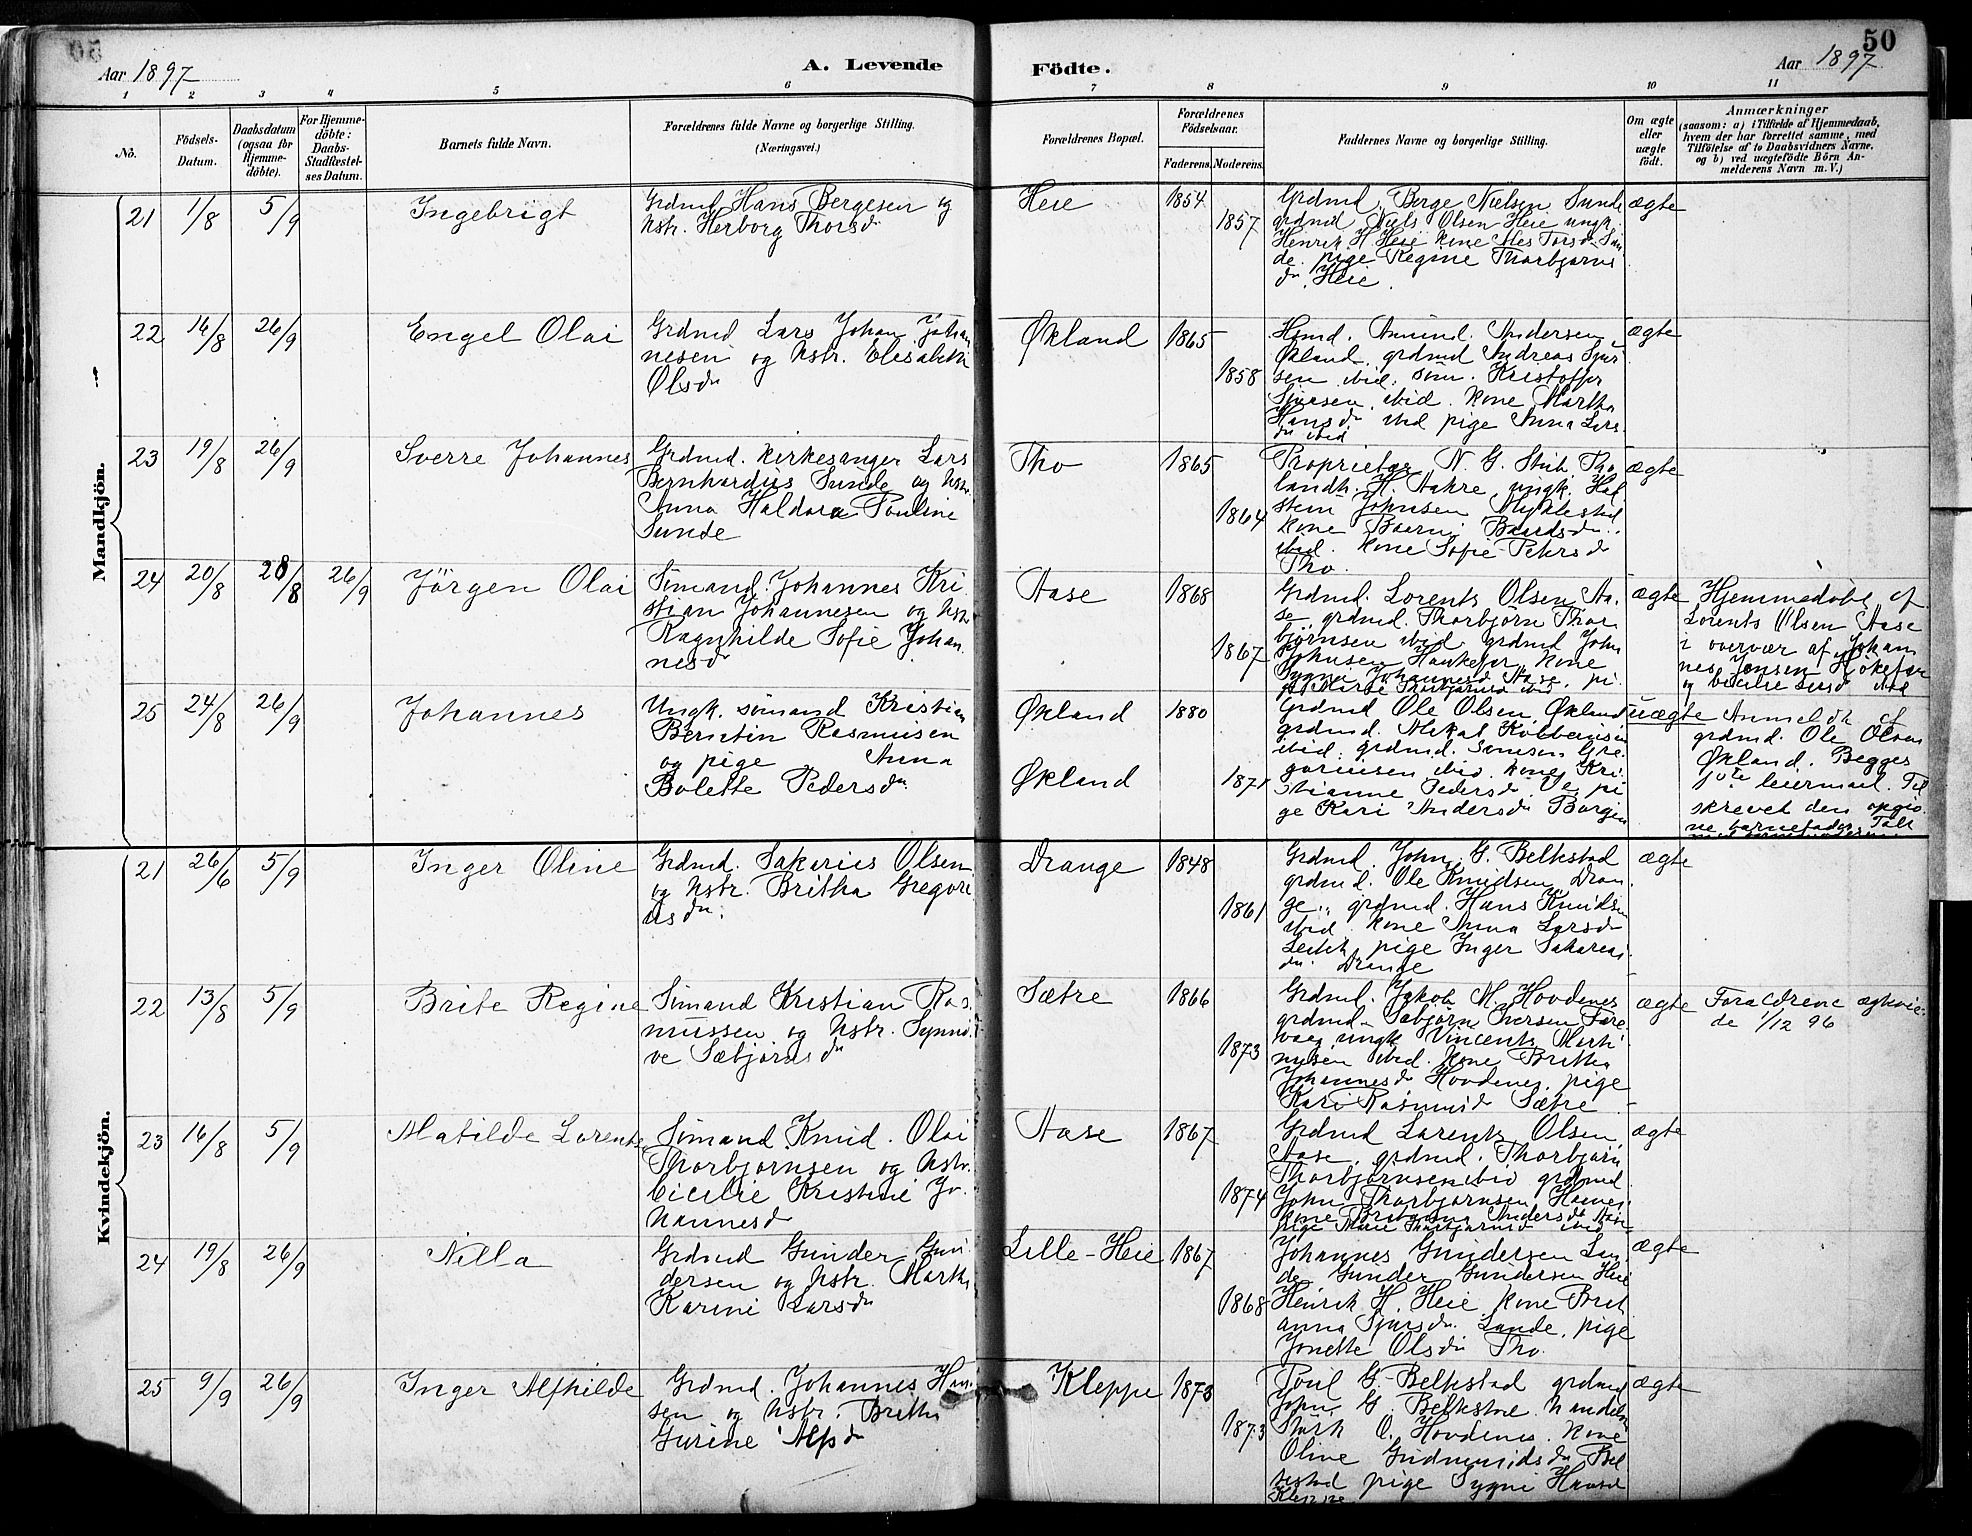 50
Aar 1897
A. Levende
Födte.
Aar 1897
50
1 2 3 4 5 6 7 8 9 10 11
No.
Födsels-
Datum.
Daabsdatum
(ogsaa for
Hjemme-
döbte).
For Hjemme-
döbte:
Daabs-
Stadfæstel-
ses Datum.
Barnets fulde Navn.
Forældrenes fulde Navne og borgerlige Stilling.
(Næringsvei.)
Forældrenes Bopæl.
Forældrenes
Födselsaar.
Faderens.
Moderens.
Faddernes Navne og borgerlige Stilling.
Om ægte
eller
uægte
födt.
Anmærkninger
(saasom: a) i Tilfælde af Hjemmedaab,
hvem der har forrettet samme, med
Tilföielse af to Daabsvidners Navne,
og b) ved uægtefödte Börn An-
melderens Navn m. V.)
Mandkjön.
21 1/8 5/9 Ingebrigt
Grdmd Hans Bergesen og
hstr. Herborg Thorsdr
Heie 1854 1857
Grdmd. Berge Nielsen Sunde
grdmd Niels Olsen Heie ungk.
Henrik H Heie kone
de. pige Regine Thorbjørns
dr. Heie.
ægte
22 16/8 26/9 Engel Olai
Grdmd Lars Johan Johan
nesen og hstr. Elisabeth
Olsdr
Økland 1865 1858
Hmd. Amund. Andersen
Økland, grdmd Andreas Sjur
sen ibid. søn. Kristoffer
Sjursen, ibid. kone Martha
Hansdr ibid pige Anna Lars
dr ibid
ægte
23 19/8 26/9 Sverre Johannes
Grdmd. kirkesanger Lars
Bernhardus Sunde og hstr.
Anna Haldora Pauline
Sunde
Tho 1865 1864
Proprietær N. G. Stub Tho
landh. H. Aakre, ungk. Hal
stein Johnsen Myklestad
kone Baarni Baardsdr.
ibid. kone Sofie Petersdr
Tho.
ægte
24 20/8 28/8 26/9 Jörgen Olai
Sömand. Johannes Kri
stian Johannesen og hstr
Ragnhilde Sofie Johan
nesdr
Aase 1868 1867
Grdmd. Lorents Olsen Aa-
se, grdmd. Thorbjörn Thor
björnsen ibid grdmd John
Johnsen Haukefær, kone
Sygni Johannesdr Aase, pi-
ge Marie Thorbjørnsd ibid
ægte
Hjemmedöbt af
Lorents Olsen Aase
i overvær af Johan
nes Jensen
og
25 24/8 26/9 Johannes
Ungk. sömand Kristian
Berntin Rasmusen
og pige Anna
Bolette Pedersdr.
Økland
Økland
1880 1871
Grdmd Ole Olsen, Økland
grdmd. Mikal Kolbensen
ibid. grdmd. Simesen Gre
goriusen ibid. kone Kri-
stianne Pedersdr. Ve pi
ge Kari Andersdr Borgen
uægte
Anmeldt af
grdmd. Ole Olsen
Økland. Begges
1ste leiermaal. Til
skrevet den opgiv
ne barnefader.
Kvindekjön.
21 26/6 5/9 Inger Oline
Grdmd. Sakarius Olsen
og hstr. Britha Gregori
usdr.
Drange 1848 1861
Grdmd. John G. Belkstad
grdmd. Ole Knudsen Dran
ge, grdmd. Hans Knudsen
ibid. kone Anna Larsdr
pige Inger Sakarias
dr. Drange
ægte
22 13/8 5/9 Brite Regine
Sömand Kristian Ras
mussen og hstr. Synnö
ve Sæbjörnsdr
Sætre 1866 1873
Grdmd. Jakob M. Hovdenes
grdmd. Sæbjörn Iversen Fære
vaag ungk Vincents Marti
nusen ibid. kone Britha
Johannesdr Hovdenes. pige
Kari Rasmusdr Sætre
ægte
Forældrene ægtevie-
de 1/12 96
23 16/8 5/9 Matilde Lorentse
Sömand Knud. Olai
Thorbjörnsen og hstr.
Cicilie Kristine Jo-
hannesdr
Aase 1867 1874
Grdmd Lorents Olsen,
Aase, grdmd. Thorbjörn
Thorbjörnsen ibid grdmd
John Thorbjørnsen
kone Britanna Andersdr Aase
pige Marie Thorbjørnsd ibid
ægte
24 19/8 26/9 Nilla
Grdmd Gunder Gun
dersen og hstr. Martha
Karine Larsdr
Lille-Heie 1867 1868
Johannes Gundersen Lun
de, Gunder Gundersen Heie
Henrik H. Heie kone Brit
anna Sjursdr. Lunde, pige
Jonette Olsdr Tho.
ægte
25 9/9 26/9 Inger Alfhilde
Grdmd. Johannes Han
sen og hstr. Britha
Gurine Alfsdr
Kleppe 1873 1873
Poul G. Belkstad grdmd
John G. Belkstad. handelsm
Störk O. Hovdenes. kone
Oline Gudmundsdr Bel
kestad pige Sygni Hansd
Kleppe
ægte